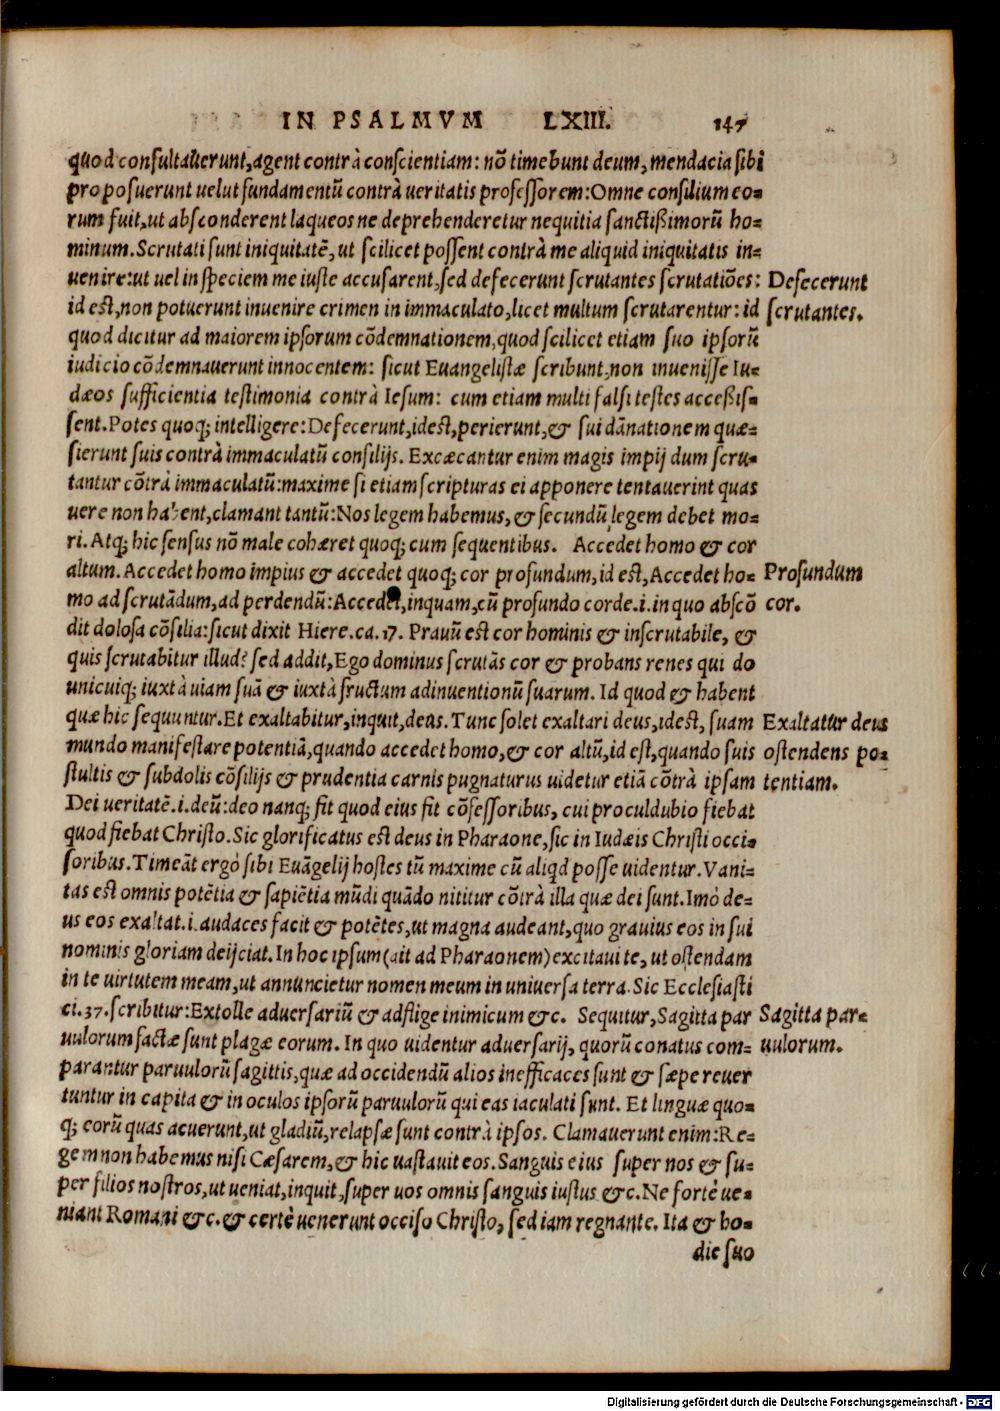 IN PSALMVM LXIII. 147
quod consultauerunt, agent contrà conscientiam: nõ timebunt deum, mendacia sibi
proposuerunt uelut fundamentũ contrà ueritatis professorem: Omne consilium eo=
rum fuit, ut absconderent laqueos ne deprehenderetur nequitia sanctißimorũ ho=
minum. Scrutati sunt iniquitatẽ, ut scilicet possent contrà me aliquid iniquitatis in=
uenire: ut uel in speciem me iuste accusarent, sed defecerunt scrutantes scrutatiões: Defecerunt
id est, non potuerunt inuenire crimen in immaculato, licet multum scrutarentur: id scrutantes.
quod dicitur ad maiorem ipsorum cõdemnationem, quod scilicet etiam suo ipsorũ
iudicio cõdemnauerunt innocentem: sicut Euangelistæ scribunt, non inuenisse Iu=
dæos sufficientia testimonia contrà Iesum: cum etiam multi falsi testes acceßis=
sent. Potes quoq; intelligere: Defecerunt, idest, perierunt, & sui dãnationem quæ=
sierunt suis contrà immaculatũ consilijs. Excæcantur enim magis impij dum scru=
tantur cõtrà immaculatũ: maxime si etiam scripturas ei apponere tentauerint quas
uere non habent, clamant tantũ: Nos legem habemus, & secundũ legem debet mo=
ri. Atq; hic sensus nõ male cohæret quoq; cum sequentibus. Accedet homo & cor
altum. Accedet homo impius & accedet quoq; cor profundum, id est, Accedet ho= Profundum
mo ad scrutãdum, ad perdendũ: Accedet, inquam, cũ profundo corde .i. in quo abscõ cor.
dit dolosa cõsilia: sicut dixit Hiere. ca. 17. Prauũ est cor hominis & inscrutabile, &
quis scrutabitur illud? sed addit, Ego dominus scrutãs cor & probans renes qui do
unicuiq; iuxtà uiam suã & iuxtà fructum adinuentionũ suarum. Id quod & habent
quæ hic sequuntur. Et exaltabitur, inquit, deus. Tunc solet exaltari deus, idest, suam Exaltatur deus
mundo manifestare potentiã, quando accedet homo, & cor altũ, id est, quando suis ostendens po=
stultis & subdolis cõsilijs & prudentia carnis pugnaturus uidetur etiã cõtrà ipsam tentiam.
Dei ueritatẽ .i. deũ: deo nanq; fit quod eius fit cõfessoribus, cui proculdubio fiebat
quod fiebat Christo. Sic glorificatus est deus in Pharaone, sic in Iudæis Christi occi=
soribus. Timeãt ergò sibi Euãgelij hostes tũ maxime cũ aliqd posse uidentur. Vani=
tas est omnis potẽtia & sapiẽtia mũdi quãdo nititur cõtrà illa quæ dei sunt. Imò de=
us eos exaltat .i. audaces facit & potẽtes, ut magna audeant, quo grauius eos in sui
nominis gloriam deijciat. In hoc ipsum (ait ad Pharaonem) excitaui te, ut ostendam
in te uirtutem meam, ut annuncietur nomen meum in uniuersa terra. Sic Ecclesiasti
ci. 37. scribitur: Extolle aduersariũ & adflige inimicum &c. Sequitur, Sagitta par Sagitta par=
uulorum factæ sunt plagæ eorum. In quo uidentur aduersarij, quorũ conatus com= uulorum.
parantur paruulorũ sagittis, quæ ad occidendũ alios inefficaces sunt & sæpe reuer
tuntur in capita & in oculos ipsorũ paruulorũ qui eas iaculati sunt. Et linguæ quo=
q; eorũ quas acuerunt, ut gladiũ, relapsæ sunt contrà ipsos. Clamauerunt enim: Re=
gem non habemus nisi Cæsarem, & hic uastauit eos. Sanguis eius super nos & su=
per filios nostros, ut ueniat, inquit, super uos omnis sanguis iustus &c. Ne fortè ue=
niant Romani &c. & certè uenerunt occiso Christo, sed iam regnante. Ita & ho=
die suo
Digitalisierung gefördert durch die Deutsche Forschungsgemeinschaft - DFG